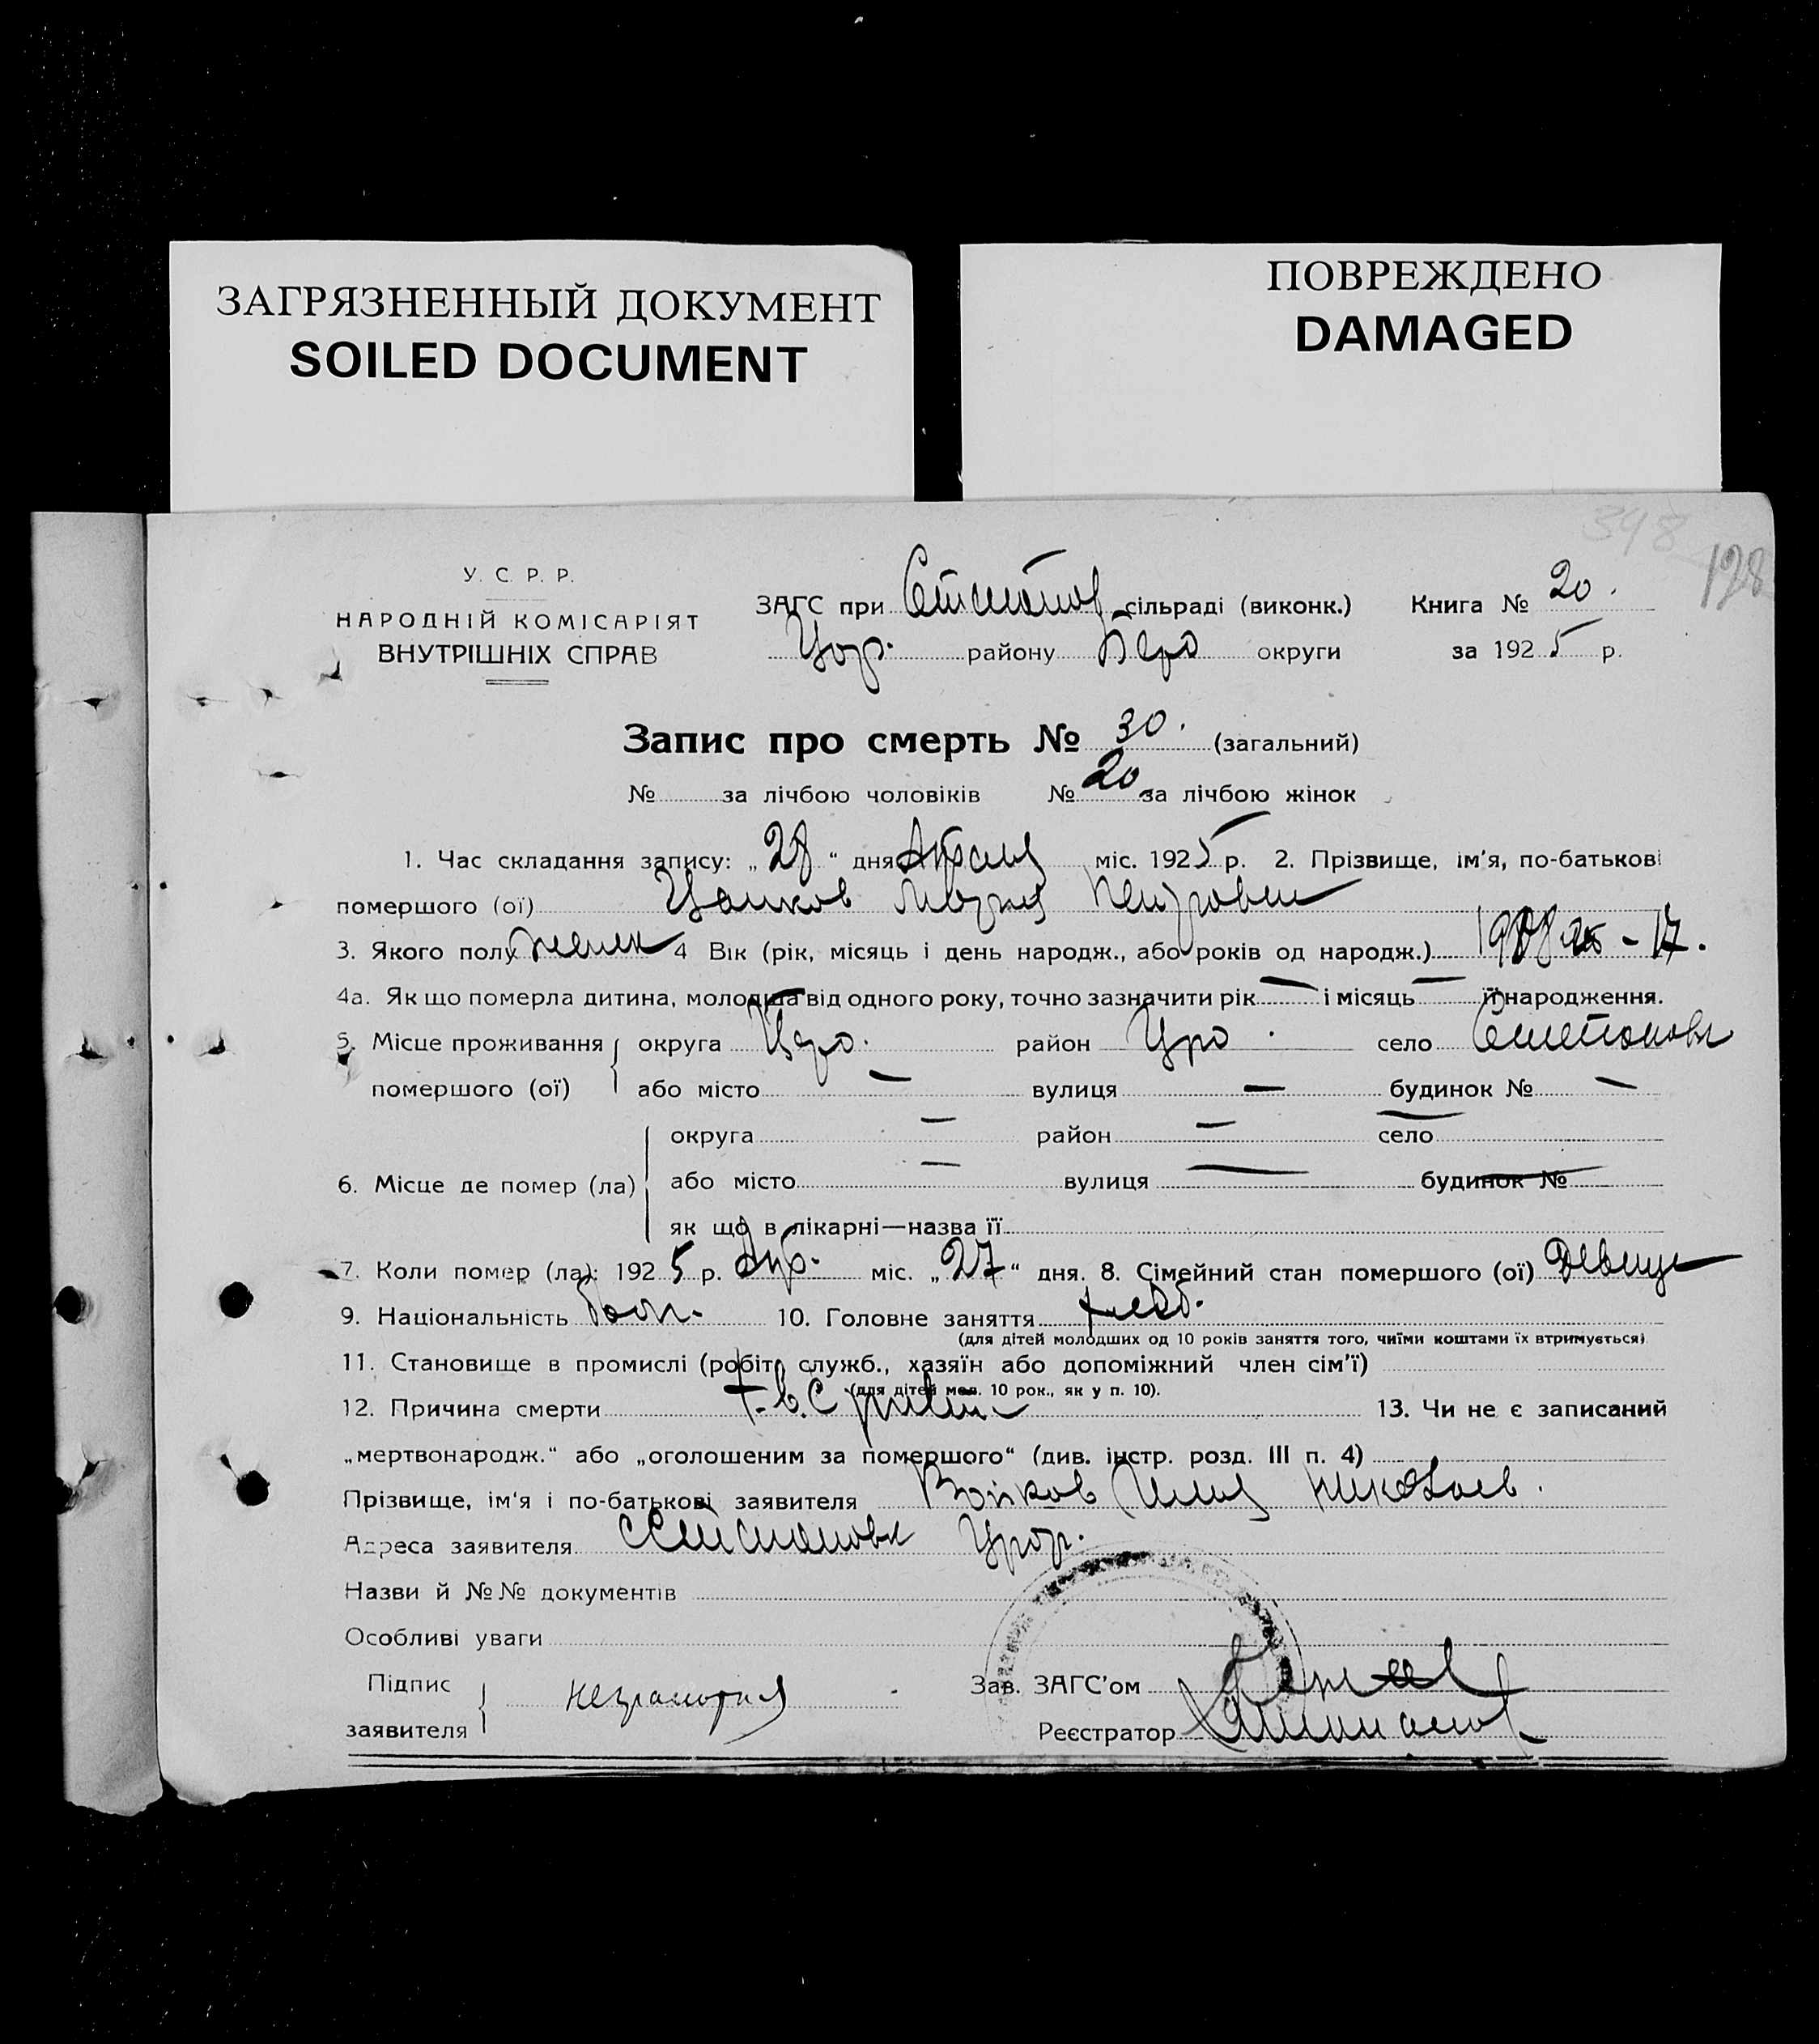 ЗАГРЯЗНЕННЫЙ ДОКУМЕНТ
SOILED DOCUMENT
ПОВРЕЖДЕНО
DAMAGED
398
128
У. С. Р. Р.
НАРОДНІЙ КОМІСАРІЯТ
ВНУТРІШНІХ СПРАВ
ЗАГС при сільраді (виконк.) Книга № 20.
району округи за 1925 р.
Запис про смерть № 30. (загальний)
№ за лічбою чоловіків № 20 за лічбою жінок
1. Час складання запису: „28“ дня Апреля міс. 1925 р. 2. Прізвище, ім'я, по-батькові
помершого (ої) Цанков Мария Петровна
3. Якого полу женск 4 Вік (рік, місяць і день народж., або років од народж.) 1908 - 17.
4а. Як що померла дитина, молодша від одного року, точно зазначити рік — і місяць — її народження.
5. Місце проживання округа район село
помершого (ої) або місто — вулиця — будинок № —
округа — район — село —
6. Місце де помер (ла) або місто — вулиця — будинок № —
як що в лікарні—назва її
7. Коли помер (ла): 1925 р. Апр. міс. „27“ дня. 8. Сімейний стан помершого (ої) Девица
9. Національність бол. 10. Головне заняття хлеб.
(для дітей молодших од 10 років заняття того, чиїми коштами їх втримується)
11. Становище в промислі (робітн служб., хазяїн або допоміжний член сім'ї)
(для дітей мол. 10 рок., як у п. 10).
12. Причина смерти 13. Чи не є записаний
„мертвонародж.“ або „оголошеним за помершого“ (див. інстр. розд. III п. 4)
Прізвище, ім'я і по-батькові заявителя Войков Илия Николаев.
Адреса заявителя
Назви й №№ документів
Особливі уваги
Підпис
заявителя неграмотия
Зав. ЗАГС'ом
Реєстратор